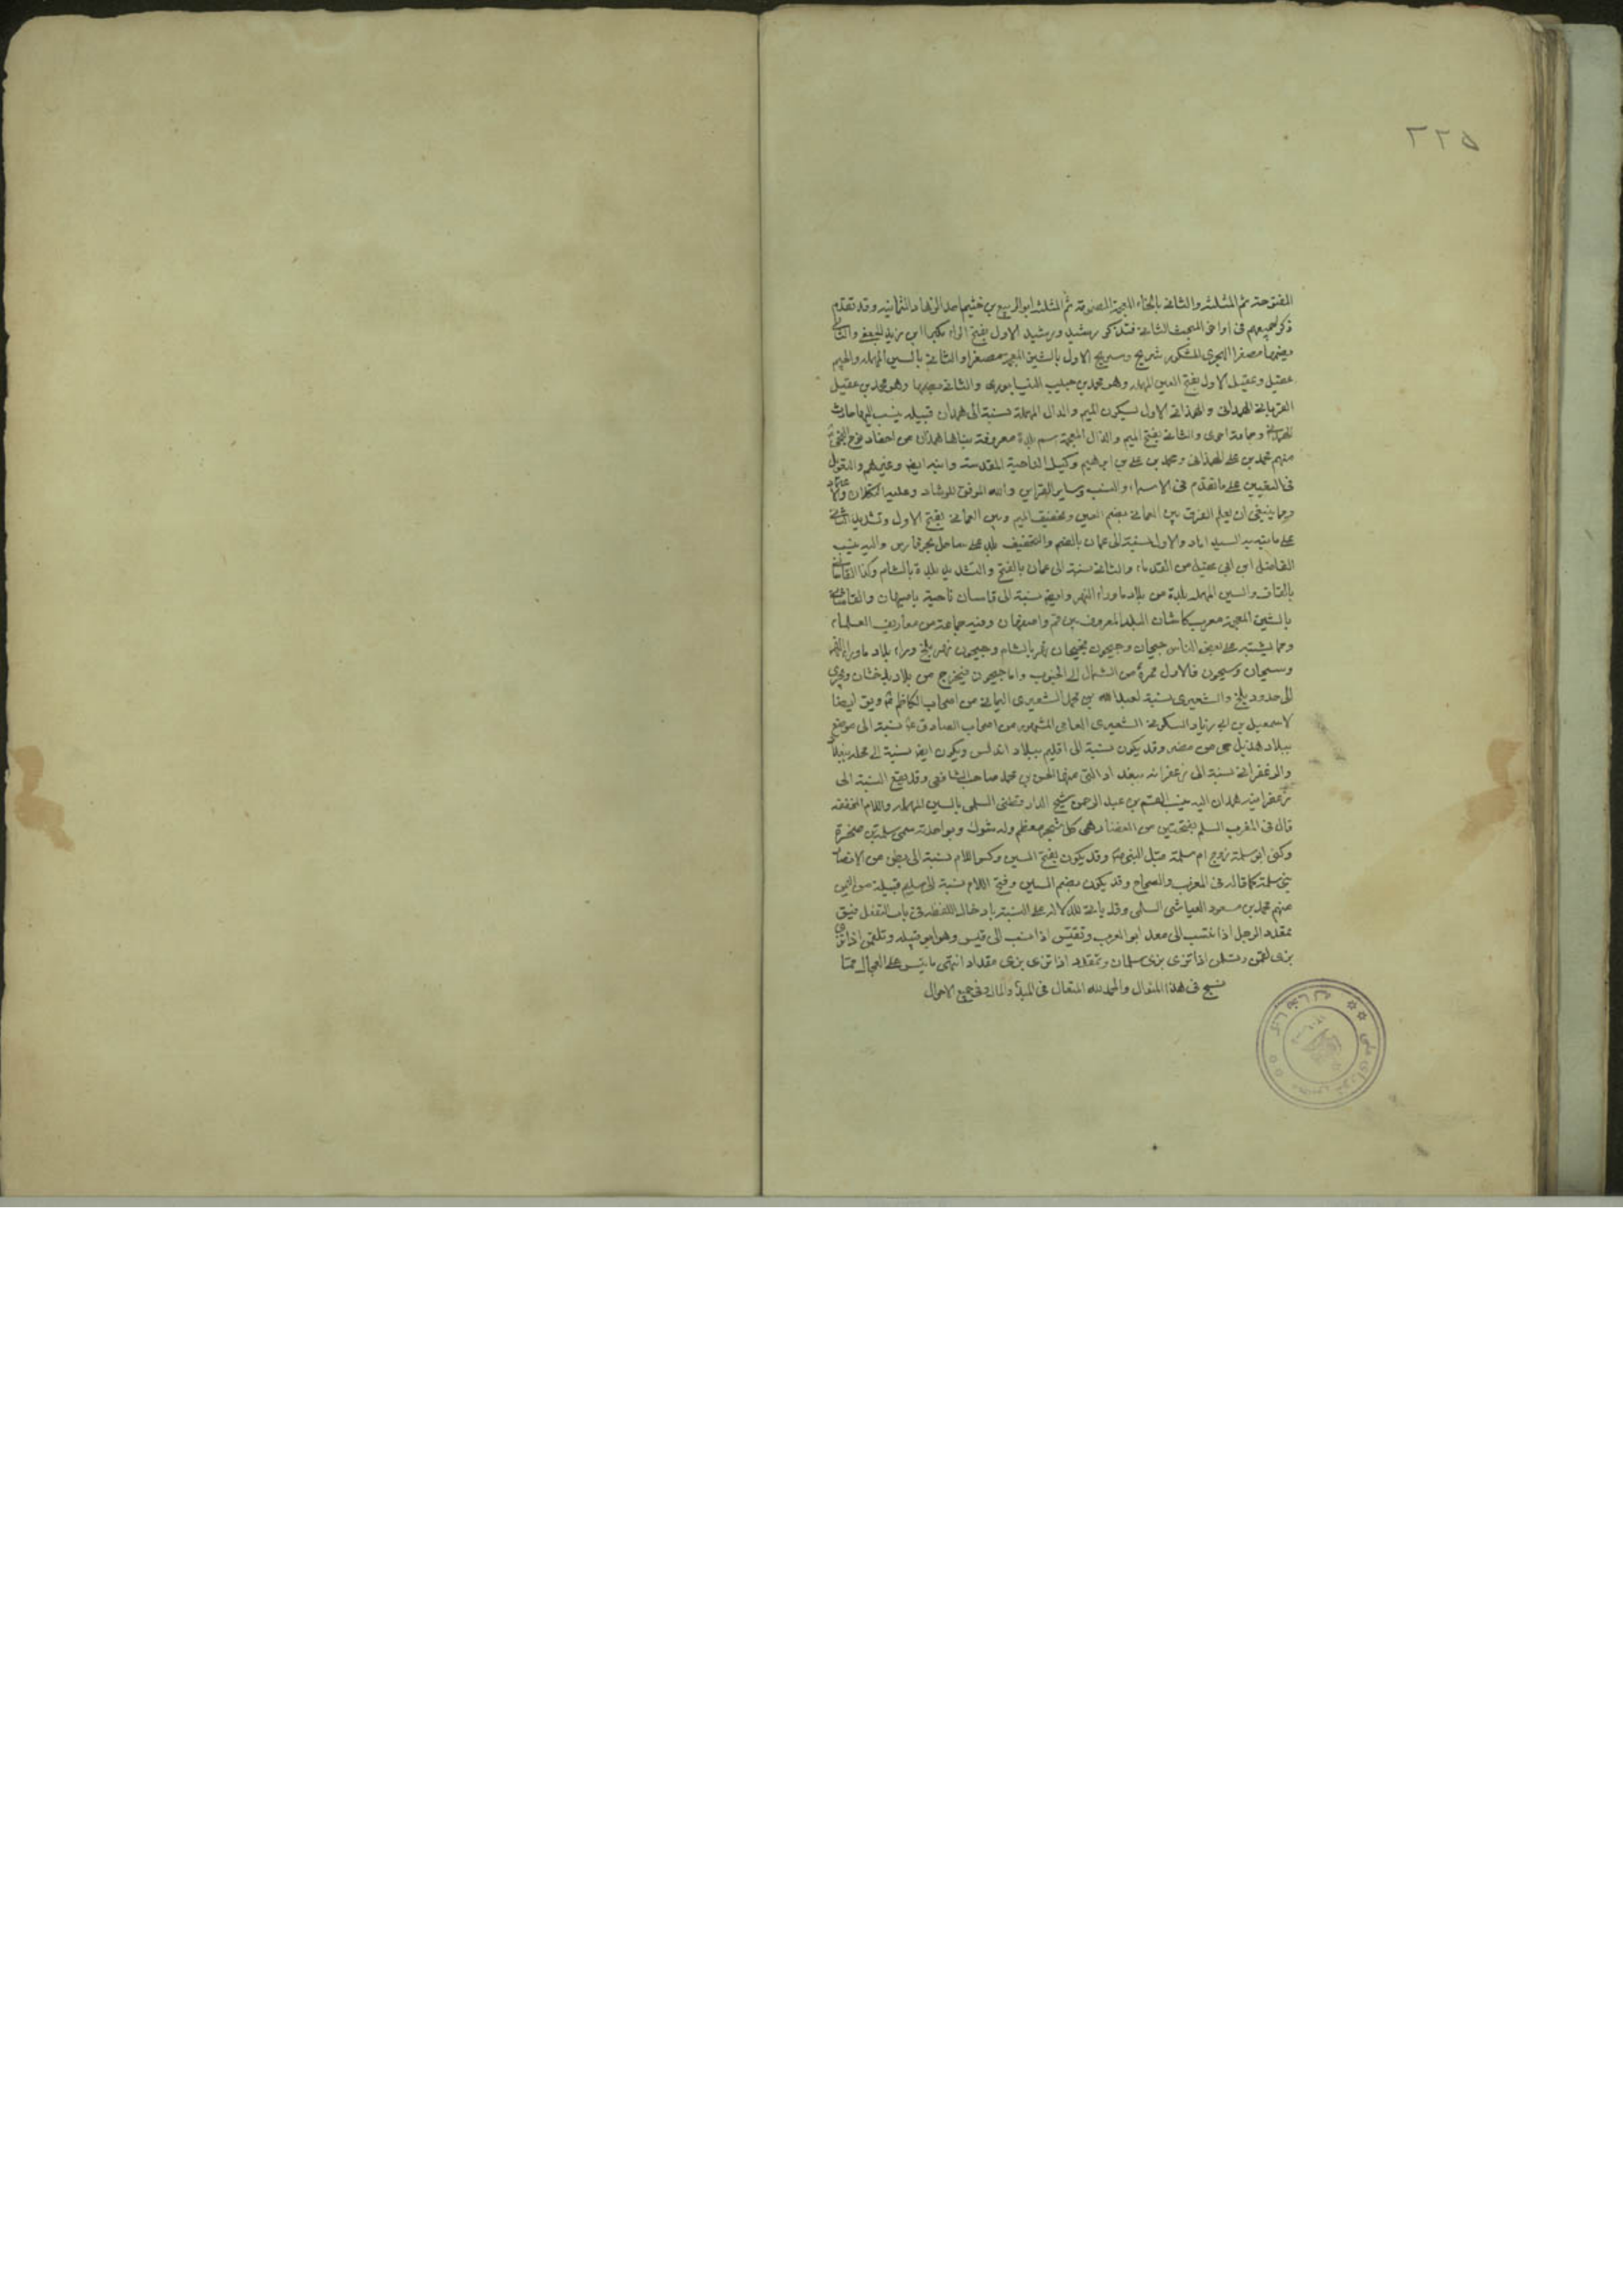 ٢٢٥
المفتوحة ثم المثلثة والثاني بالخاء المعجمة المضمومة ثم المثلثة ابو الربيع بن خثيم احد الزهاد الثمانية وقد تقدم
ذكر جميعهم فى اواخر المبحث الثاني فتذكر رشيد ورشيد الاول بفتح الراء مكبرا ابن زيد الجعفي والثاني
بضمها مصغرا الهجرى المشكور شريح وسريج الاول بالشين المعجمة مصغرا والثاني بالسين المهملة والجيم
عقيل وعقيل الاول بفتح العين المهملة وهو محمد بن حبيب النيسابورى والثاني بضمها وهو محمد بن عقيل
الهمداني والهمذاني الاول بسكون الميم والدال المهملة نسبة الى همدان قبيلة ينسب اليها حارث
الهمداني وجماعة اخرى والثاني بفتح الميم والذال المعجمة اسم بلدة معروفة بناها همذان من احفاد نوح النبي
منهم محمد بن علي الهمذاني ومحمد بن علي بن ابراهيم وكيل الناحية المقدسة وابنه ايضا وغيرهم والمعول
فى التعيين على ما تقدم فى الاسماء والنسب وساير القراين والله الموفق للرشاد وعليه التكلان
ومما ينبغى ان يعلم الفرق بين العماني بضم العين وتخفيف الميم وبين العماني بفتح الاول وتشديد الثاني
على ما نبه به السيد الداماد والاول نسبة الى عمان بالضم والتخفيف بلد على ساحل بحر فارس واليه ينسب
الفاضل ابن ابي عقيل من القدماء والثاني نسبة الى عمان بالفتح والتشديد بلدة بالشام وكذا القاساني
بالقاف والسين المهملة بلدة من بلاد ما وراء النهر وايضا نسبة الى قاسان ناحية باصبهان والقاشاني
بالشين المعجمة معرب كاشان البلد المعروف بين قم واصفهان ومنه جماعة من معاريف العلماء
ومما يشتبه على بعض الناس جيحان وجيحون فجيحان نهر بالشام وجيحون نهر بلخ وراء بلاد ما وراء النهر
وسيحان وسيحون فالاول ممره من الشمال الى الجنوب واما جيحون فيخرج من بلاد بدخشان ويجرى
الى حدود بلخ والشعيرى نسبة لعبد الله بن محمد الشعيرى اليماني من اصحاب الكاظم ويق ايضا
لاسمعيل بن ابي زياد السكوني الشعيرى العامي المشهور من اصحاب الصادق نسبة الى موضع
ببلاد هذيل حى من مضر وقد يكون نسبة الى اقليم ببلاد اندلس ويكون ايضا نسبة الى محلة ببغداد
والزعفراني نسبة الى زعفرانية ببغداد التى منها الحسن بن محمد صاحب الشافعى وقد يقع النسبة الى
زعفرانية همدان اليه ينسب القسم بن عبد الرحمن شيخ الدارقطنى السلمى بالسين المهملة واللام المخففة
قال فى المغرب السلم بفتحتين من العضاه وهى كل شجر معظم وله شوك وبواحدته سمى سلمة بن صخرة
وكنى ابو سلمة زوج ام سلمة قبل النبى وقد يكون بفتح السين وكسر اللام نسبة الى بطن من الانصار
بنى سلمة كما قاله فى المغرب والصحاح وقد يكون بضم السين وفتح اللام نسبة الى سليم قبيلة
منهم محمد بن مسعود العياشى السلمى وقد ياتي للدلالة على النسبة بادخال اللفظة فى باب التفعل فيق
تمعدد الرجل اذا انتسب الى معد ابو العرب وتقيس اذا انتسب الى قيس وهو ابو قبيلة وتلقمن اذا تزى
بزى لقمن وتسلمن اذا تزى بزى سلمان وتمقدد اذا تزى بزى مقداد انتهى ما تيسر على العجالة مما
نسج فى هذا المنوال والحمد لله المتعال فى المبدأ والمآل وفى جميع الاحوال